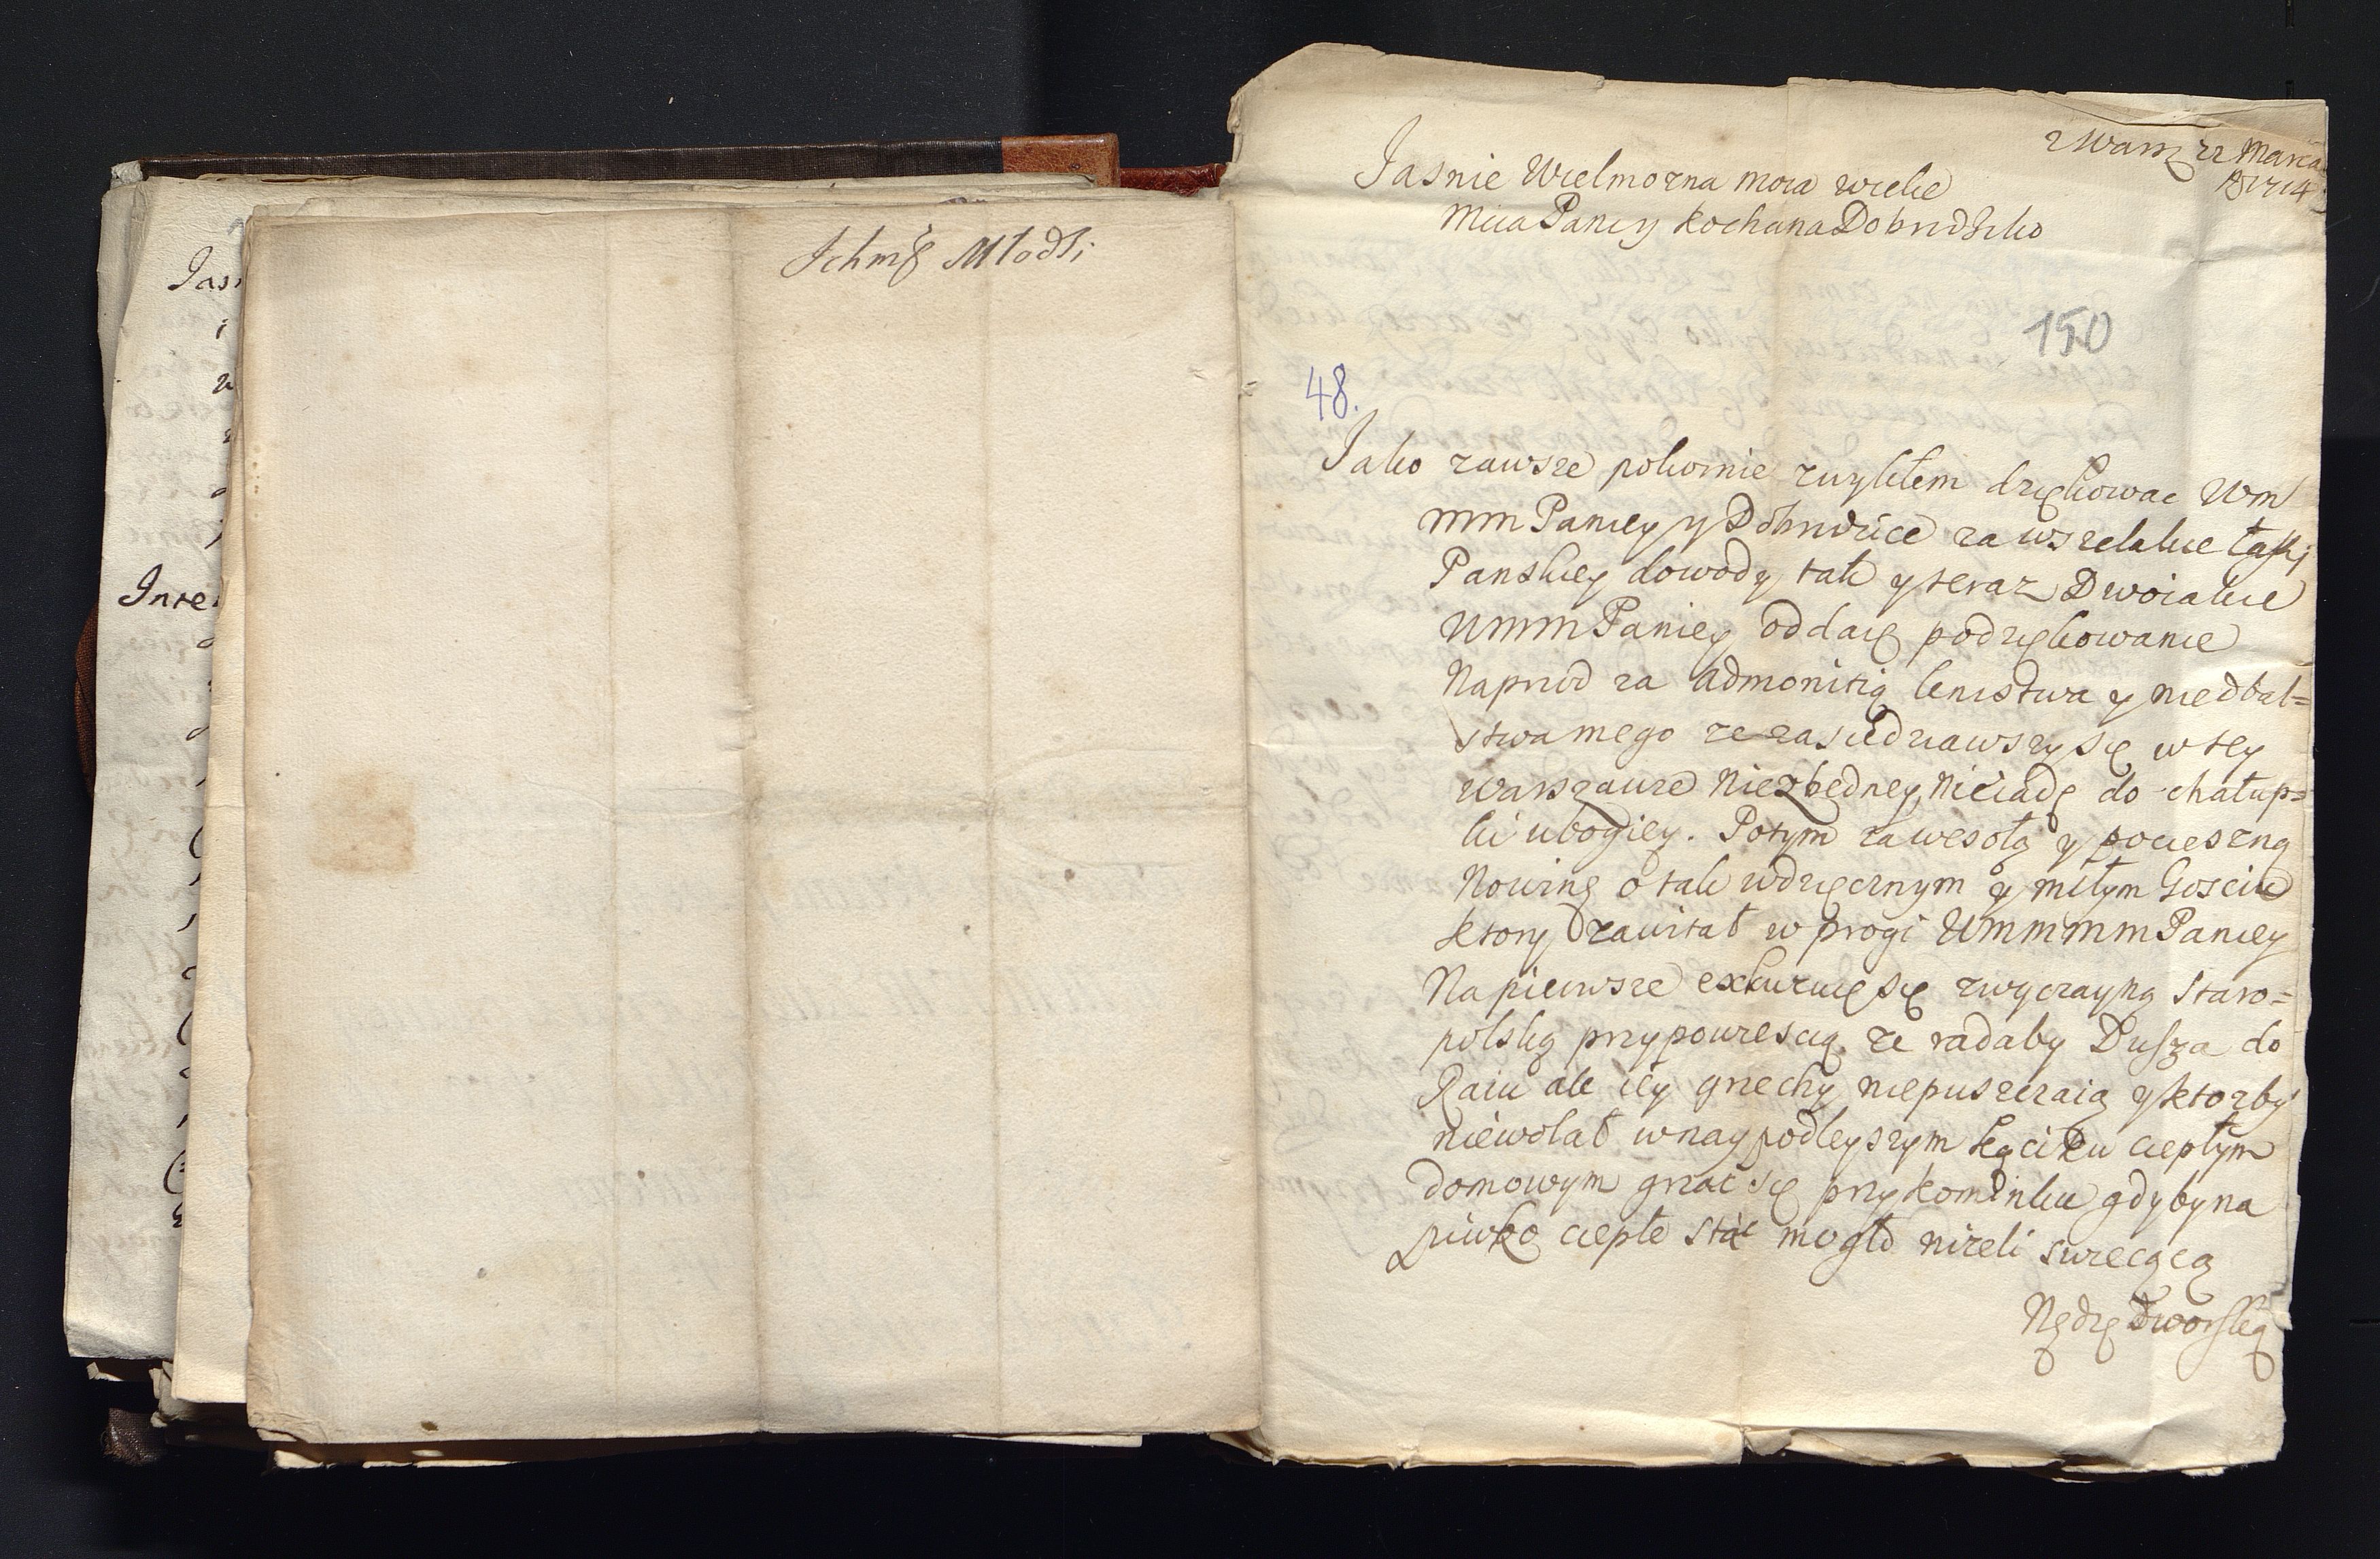 Ichmć Młodśi
z Warsz 22 Marca
1714
Jasnie Wielmozna moia wielce
Mcia Paniey kochana Dobrodziko
150
48.
Jako zawsze pokornie zwykłem dziękowac Wm
mm Paniey y Dobrodzice za wszelakie łaski
Panskiey dowody, tak y teraz Dwoiakie
Ummm Paniey oddaię podziękowanie
Naprzod za admonitią lenistwa y niedbal=
stwa mego ze zasiedziawszy się w tey
Warszawie Niezbędney, nieiadę do chałup=
ki ubogiey. Potym za wesołą y pocieszną
Nowinę o tak wdzięcznym y miłym Gosciu
ktory zawitał w progi Ummmm Paniey
Na pierwsze exkuzuię się zwyczayną staro=
polską przypowiescią ze radaby Dusza do
Raiu ale iey grzechy niepuszczaią y ktozby
niewolał w naypodleyszym kąciku ciepłym
domowym grzac się przy kominku gdyby na
piwko ciepłe stac mogło nizeli swiecącą
Nędzę Dworską
Jas
Inte